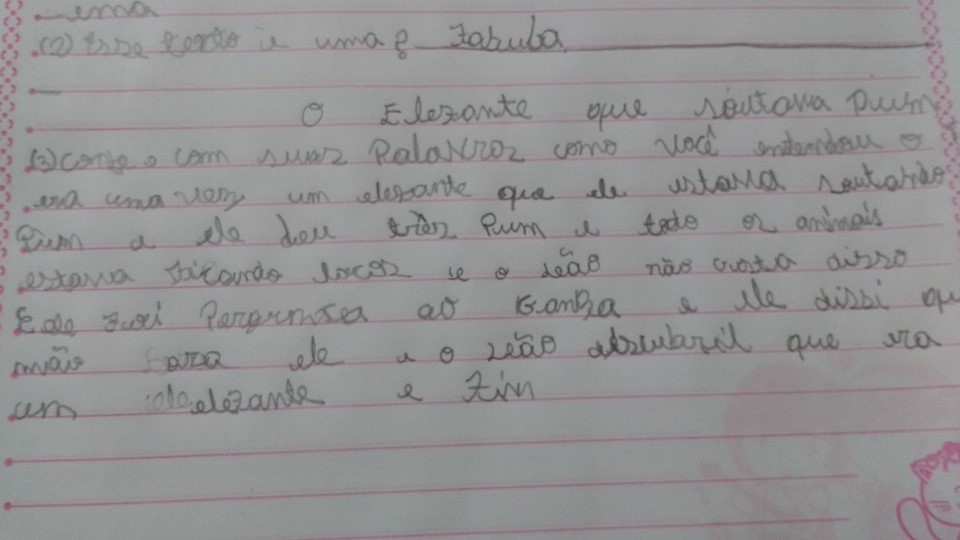 ema
(2) Esse texto é uma? Fabula
O Elefante que soutava Pium
(3) conte o com suas Palavras como você entendeu o
era uma vez um elefante que ele estava soutando
Pium e ele deu três Pium e todo os animais
estava ficando locos e o leão não gosta disso
E ele foi Pergumta ao e ele dissi qu
não fora ele e o leão descubril que era
um elefante e Fim